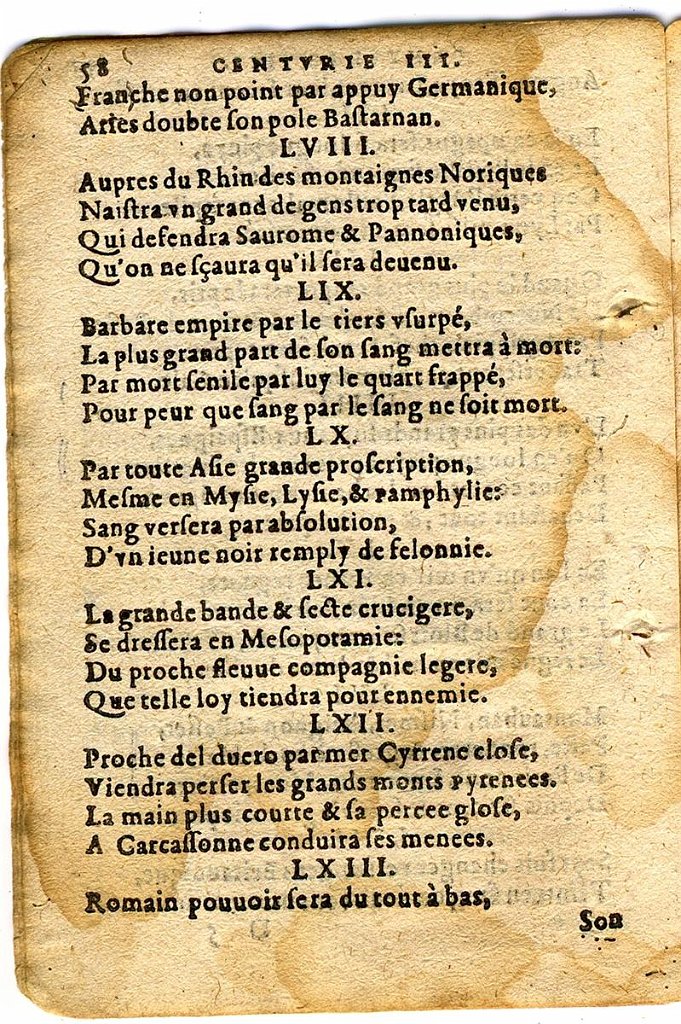 58 CENTVRIE III.
Franche non point par appuy Germanique,
Aries doubte ſon pole Baſtarnan.
LVIII.
Aupres du Rhin des montaignes Noriques
Naiſtra vn grand de gens trop tard venu,
Qui defendra Saurome & Pannoniques,
Qu'on ne ſçaura qu'il ſera deuenu.
LIX.
Barbare empire par le tiers vſurpé,
La plus grand part de ſon ſang mettra à mort:
Par mort ſenile par luy le quart frappé,
Pour peur que ſang par le ſang ne ſoit mort.
LX.
Par toute Aſie grande proſcription,
Meſme en Myſie, Lyſie, & Pamphylie:
Sang verſera par abſolution,
D'vn ieune noir remply de felonnie.
LXI.
La grande bande & ſecte crucigere,
Se dreſſera en Meſopotamie:
Du proche fleuue compagnie legere,
Que telle loy tiendra pour ennemie.
LXII.
Proche del duero par mer Cyrrene cloſe,
Viendra perſer les grands monts Pyrenees.
La main plus courte & ſa percee gloſe,
A Carcaſſonne conduira ſes menees.
LXIII.
Romain pouuoir ſera du tout à bas,
Son